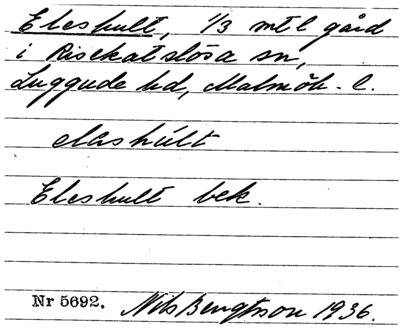 Eleshult, 1/3 mtl gård
i Risekatslösa sn,
Luggude hd, Malmöh. l.
elashúlt
Eleshult bek.
Nr 5692. Nils Bengtsson 1936.